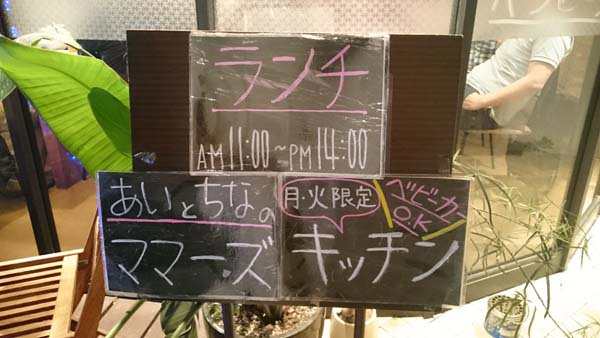 ランチ
AM 11:00～PM 14:00
あいとちなの
ママーズ
月・火限定
ベビーカー
O.K
キッチン